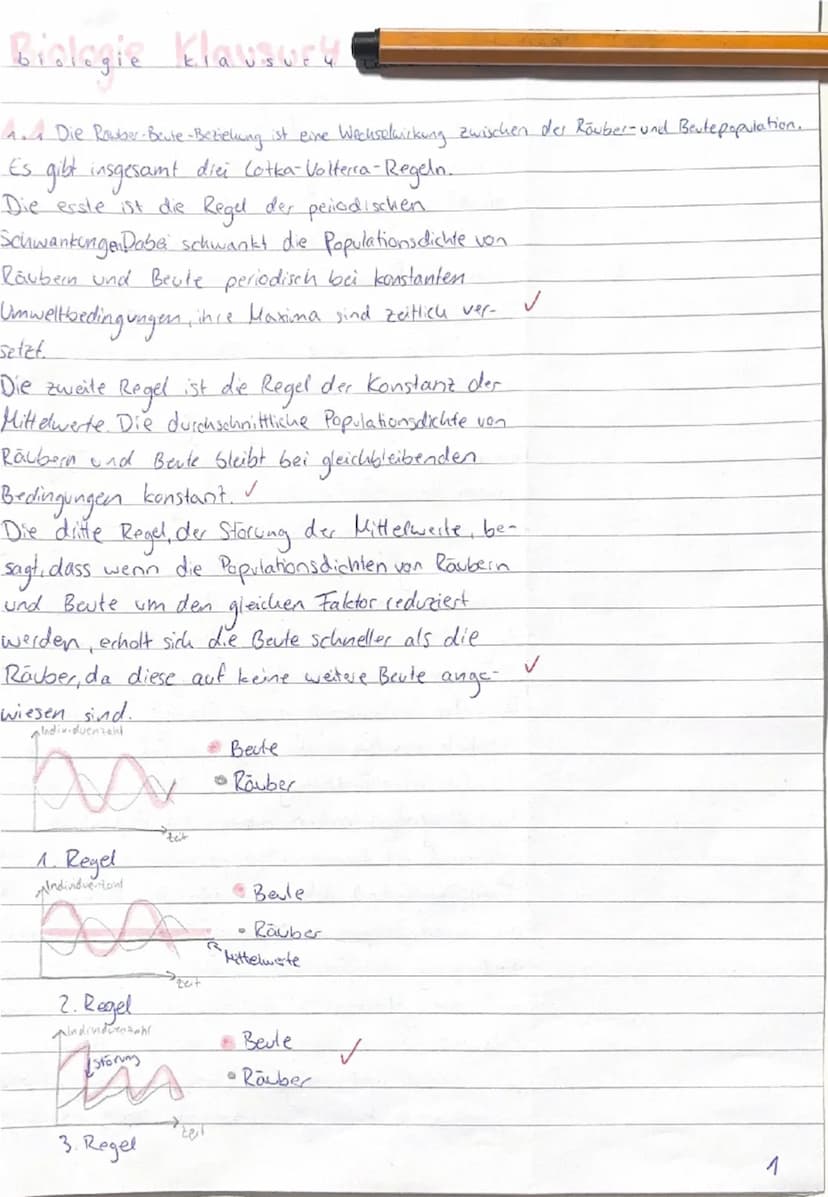 Biologie Klausur 4
biologie klausur 4
1.1 Die Räuber-Beute-Beziehung ist eine Wechselwirkung zwischen der Räuber- und Beutepopulation.
Es gibt insgesamt drei Lotka-Volterra-Regeln.
Die erste ist die Regel der periodischen
Schwankungen. Dabei schwankt die Populationsdichte von
Räubern und Beute periodisch bei konstanten
Umweltbedingungen, ihre Maxima sind zeitlich ver-
setzt.
Die zweite Regel ist die Regel der Konstanz der
Mittelwerte. Die durchschnittliche Populationsdichte von
Räubern und Beute bleibt bei gleichbleibenden
Bedingungen konstant.
Die dritte Regel, der Störung der Mittelwerte, be-
sagt, dass wenn die Populationsdichten von Räubern
und Beute um den gleichen Faktor reduziert
werden, erholt sich die Beute schneller als die
Räuber, da diese auf keine weitere Beute ange-
wiesen sind.
Individuenzahl
Beute
Räuber
zeit
1. Regel
Individuenzahl
Beute
Räuber
Mittelwerte
zeit
2. Regel
Individuenzahl
Störung
Beute
Räuber
zeit
3. Regel
1